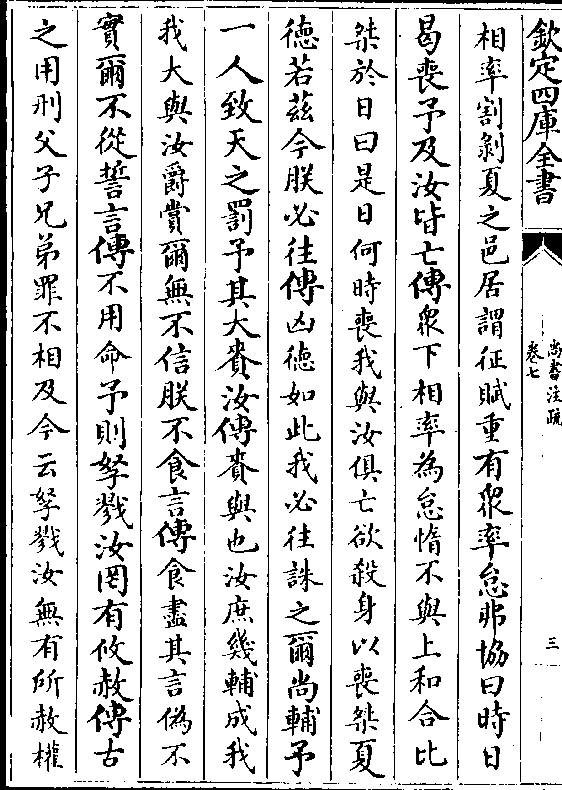 欽定四庫全書
尚書注疏
卷七
三
相率割剝夏之邑居謂征賦重有衆率怠弗協曰時日
曷喪予及汝皆亡傳衆下相率為怠惰不與上和合比
桀於日曰是日何時喪我與汝俱亡欲殺身以喪桀夏
德若茲今朕必往傳凶德如此我必往誅之爾尚輔予
一人致天之罰予其大賚汝傳賚與也汝庶幾輔成我
我大與汝爵賞爾無不信朕不食言傳食盡其言偽不
實爾不從誓言傳不用命予則孥戮汝罔有攸赦傳古
之用刑父子兄弟罪不相及今云孥戮汝無有所赦權